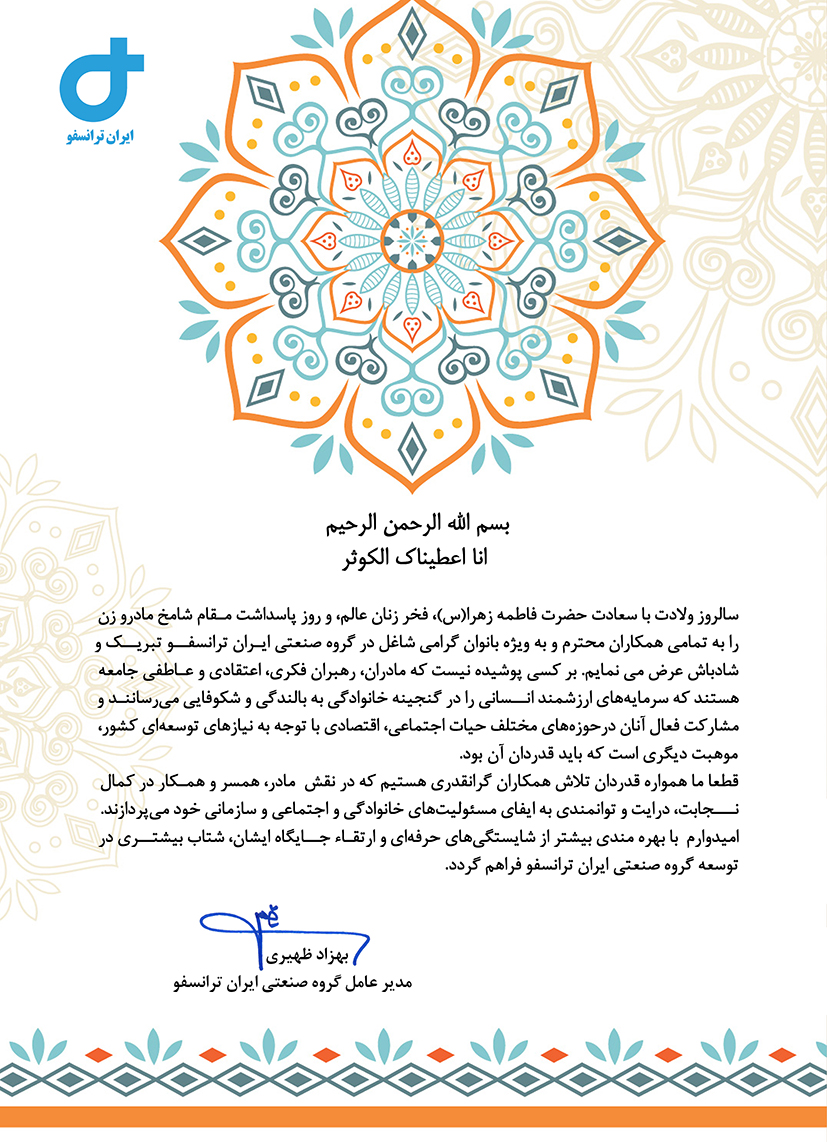 ایران ترانسفو
بسم الله الرحمن الرحیم
انا اعطیناک الکوثر
سالروز ولادت با سعادت حضرت فاطمه زهرا(س)، فخر زنان عالم، و روز پاسداشت مـقام شامخ مادرو زن
را به تمامی همکاران محترم و به ویژه بانوان گرامی شاغل در گروه صنعتی ایـران ترانسفـــو تبریـــک و
شادباش عرض می نمایم. بر کسی پوشیده نیست که مادران، رهبران فکری، اعتقادی و عـاطفی جامعه
هستند که سرمایه‌های ارزشمند انـــسانی را در گنجینه خانوادگی به بالندگی و شکوفایی می‌رساننـد و
مشارکت فعال آنان درحوزه‌های مختلف حیات اجتماعی، اقتصادی با توجه به نیازهای توسعه‌ای کشور،
موهبت دیگری است که باید قدردان آن بود.
قطعا ما همواره قدردان تلاش همکاران گرانقدری هستیم که در نقش مادر، همسر و همـکار در کمال
نـــجابت، درایت و توانمندی به ایفای مسئولیت‌های خانوادگی و اجتماعی و سازمانی خود می‌پردازند.
امیدوارم با بهره مندی بیشتر از شایستگی‌های حرفه‌ای و ارتقـاء جـــایگاه ایشان، شتاب بیشتـــری در
توسعه گروه صنعتی ایران ترانسفو فراهم گردد.
بهزاد ظهیری
مدیر عامل گروه صنعتی ایران ترانسفو